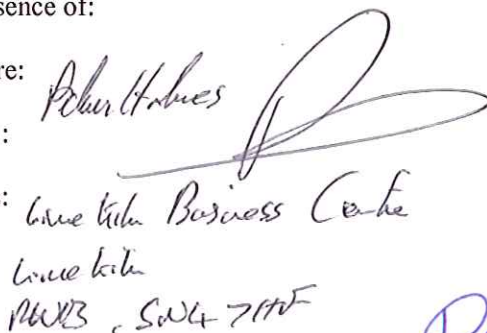 sence of:
re:
Holmes
:
: Lime Kiln Business Centre
Lime Kiln
RWB, SN4 7HF